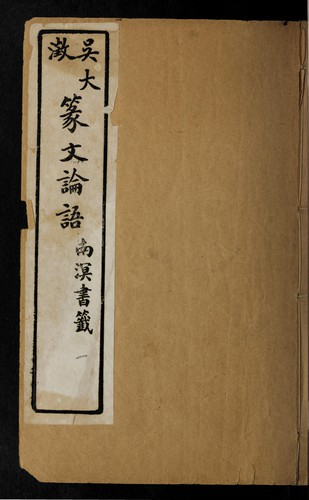 吳大澂
篆文論語
南溟書籤
一